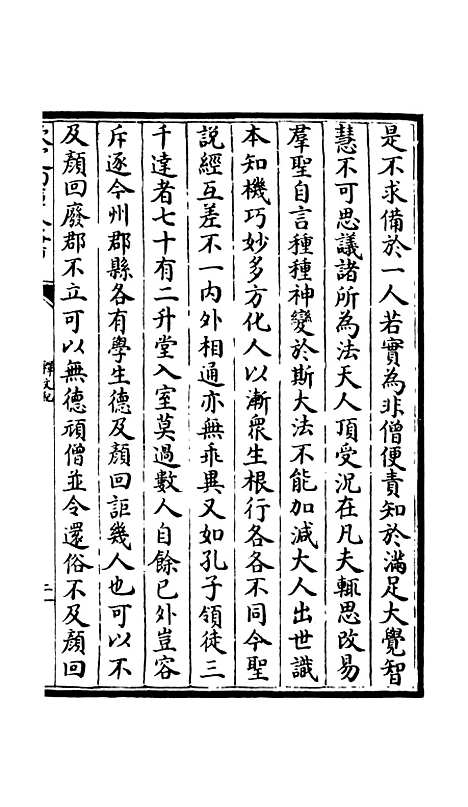 是不求備於一人若實為非僧便責知於滿足大覺智
慧不可思議諸所為法天人頂受況在凡夫輒思改易
羣聖自言種種神變於斯大法不能加減大人出世識
本知機巧妙多方化人以漸衆生根行各各不同今聖
說經互差不一內外相通亦無乖異又如孔子領徒三
千達者七十有二升堂入室莫過數人自餘已外豈容
斥逐今州郡縣各有學生德及顏回詎幾人也可以不
及顏回廢郡不立可以無德頑僧並令還俗不及顏回
釋文紀